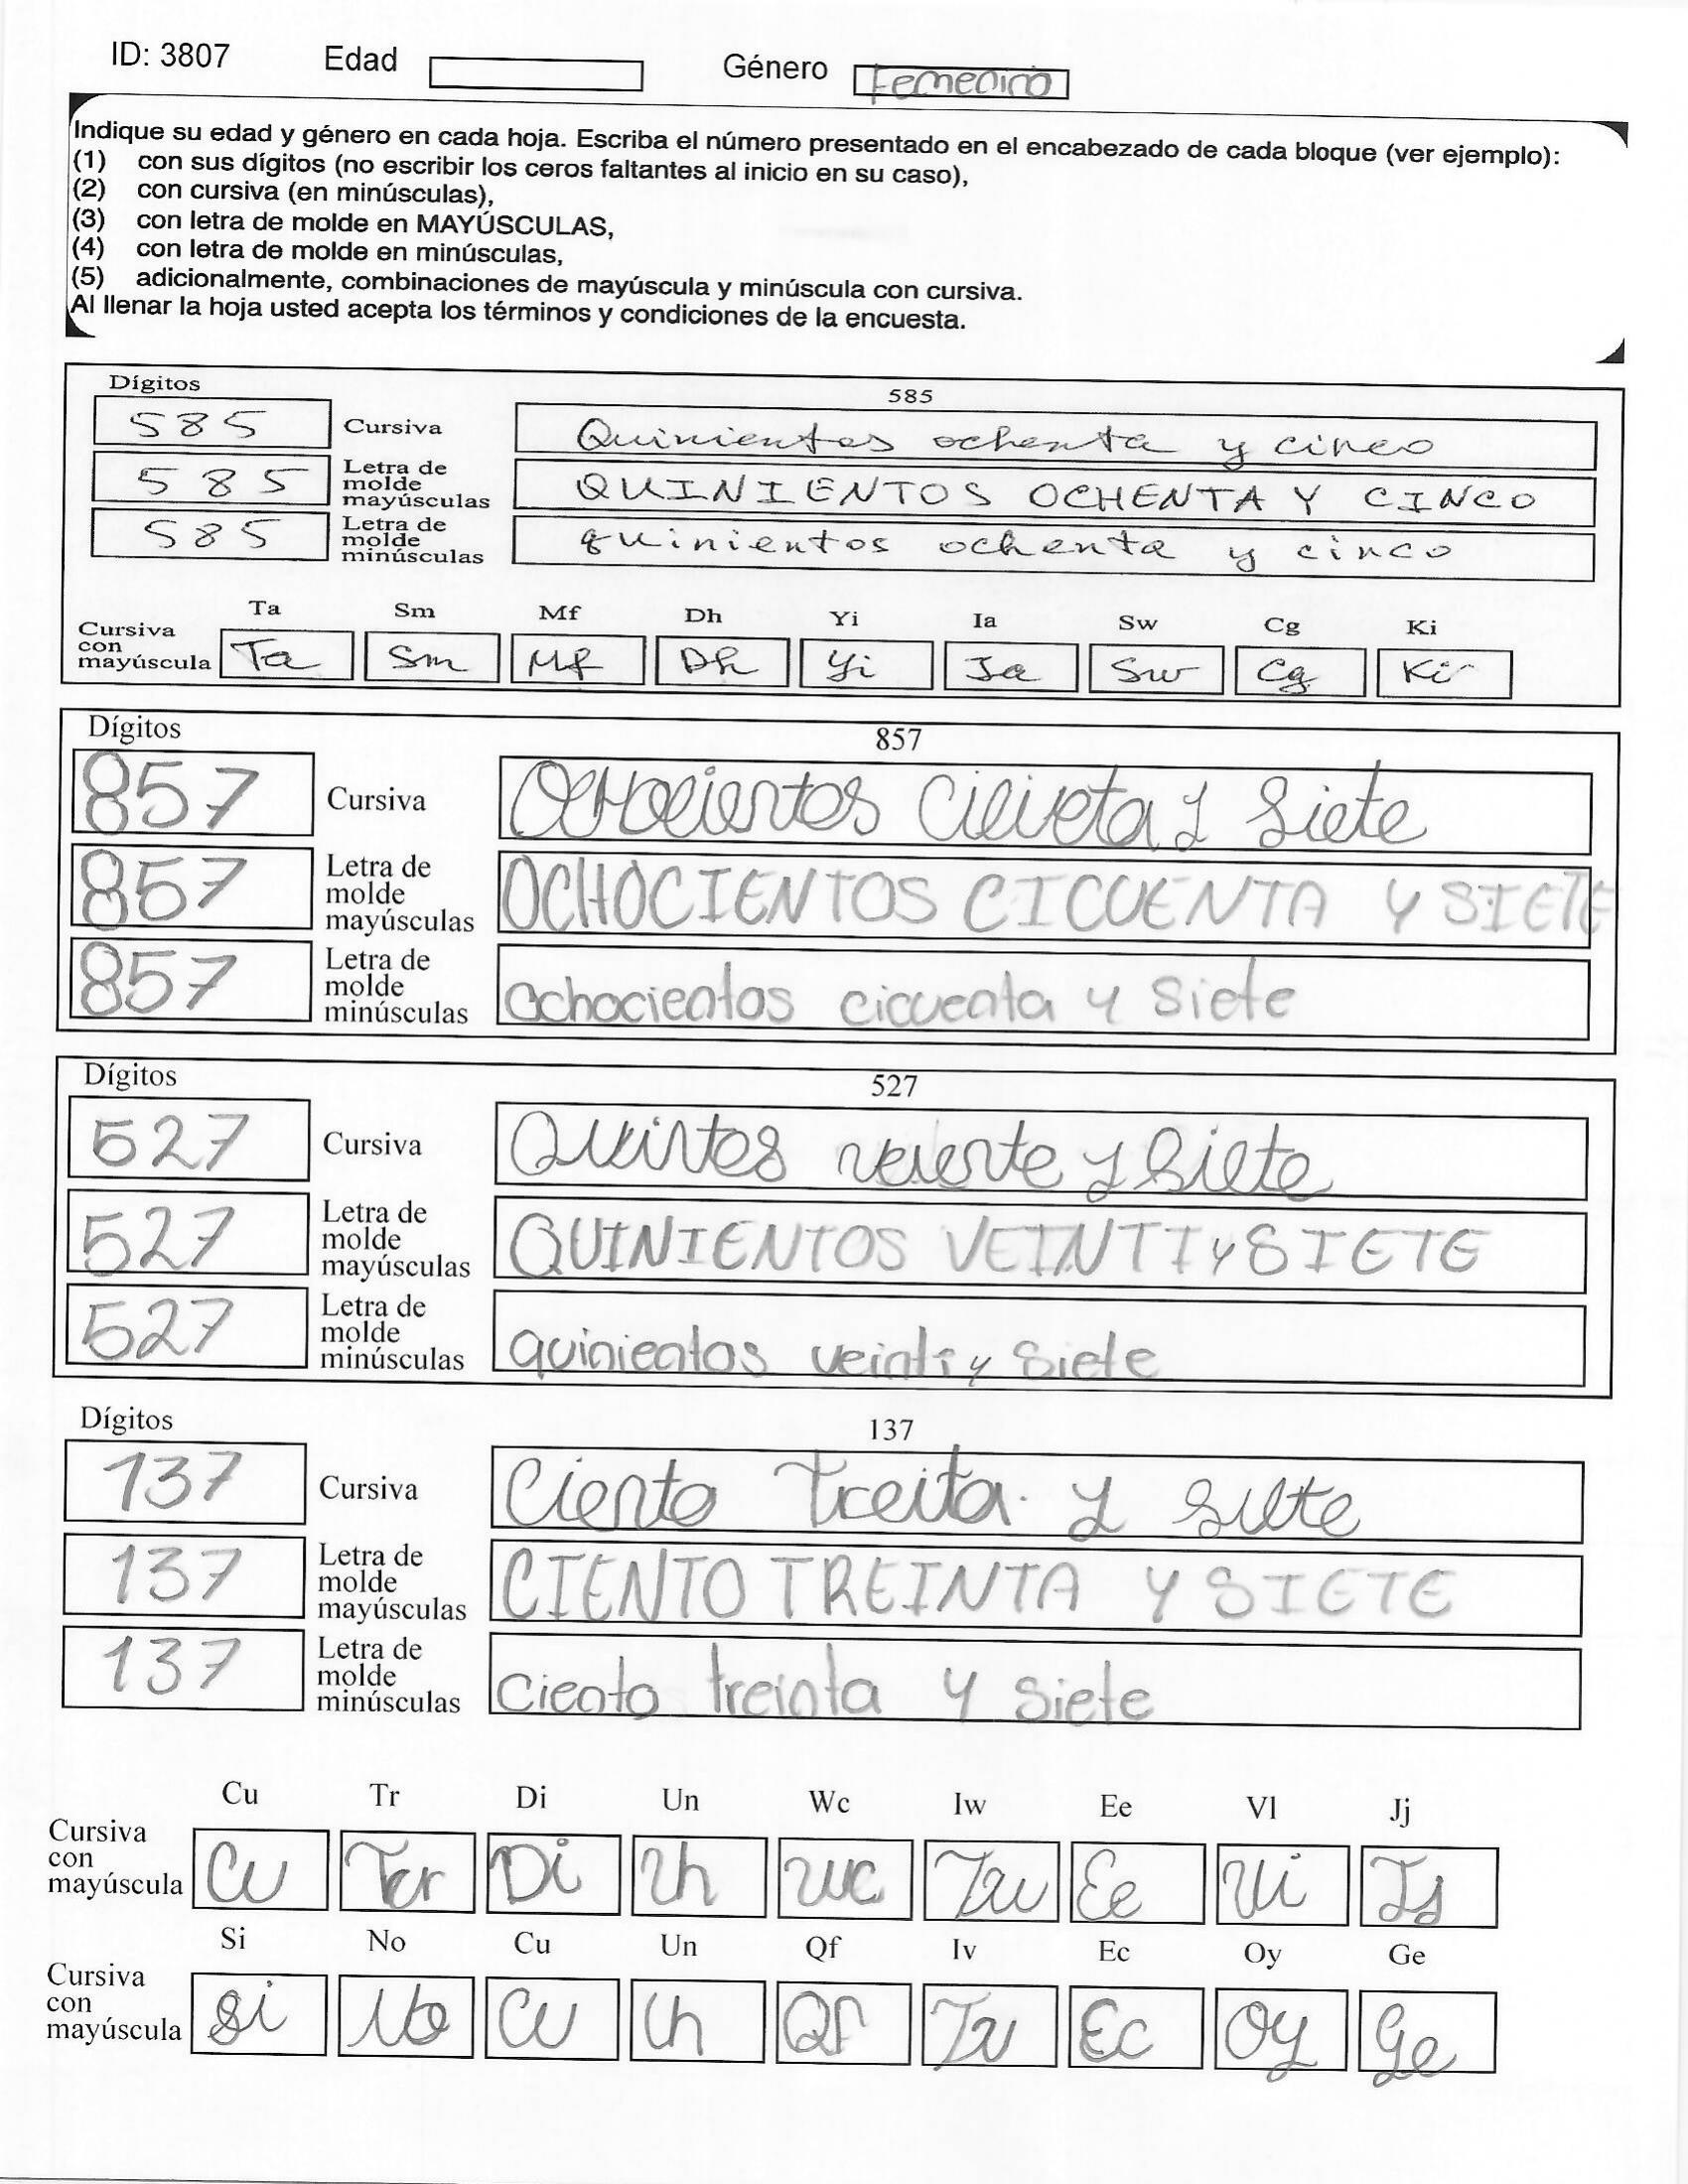 ID: 3807 Edad Género Femenino
Indique su edad y género en cada hoja. Escriba el número presentado en el encabezado de cada bloque (ver ejemplo):
(1) con sus dígitos (no escribir los ceros faltantes al inicio en su caso),
(2) con cursiva (en minúsculas),
(3) con letra de molde en MAYÚSCULAS,
(4) con letra de molde en minúsculas,
(5) adicionalmente, combinaciones de mayúscula y minúscula con cursiva.
Al llenar la hoja usted acepta los términos y condiciones de la encuesta.
Dígitos 585
585 Cursiva Quinientos ochenta y cinco
585 Letra de molde mayúsculas QUINIENTOS OCHENTA Y CINCO
585 Letra de molde minúsculas quinientos ochenta y cinco
Ta Sm Mf Dh Yi Ia Sw Cg Ki
Cursiva con mayúscula Ta Sm Mf Dh Yi Ia Sw Cg Ki
Dígitos 857
857 Cursiva Ochocientos y Siete
857 Letra de molde mayúsculas OCHOCIENTOS CICUENTA Y SIETE
857 Letra de molde minúsculas ochocientos cicuenta y siete
Dígitos 527
527 Cursiva Quintos y Siete
527 Letra de molde mayúsculas QUINIENTOS VEINTI y SIETE
527 Letra de molde minúsculas quinientos veinti y siete
Dígitos 137
137 Cursiva Ciento Treita y siete
137 Letra de molde mayúsculas CIENTO TREINTA Y SIETE
137 Letra de molde minúsculas ciento treinta y siete
Cu Tr Di Un Wc Iw Ee Vl Jj
Cursiva con mayúscula Cu Tr Di Un Wc Iw Ee Vi Jj
Si No Cu Un Qf Iv Ec Oy Ge
Cursiva con mayúscula Si No Cu Un Qf Iv Ec Oy Ge